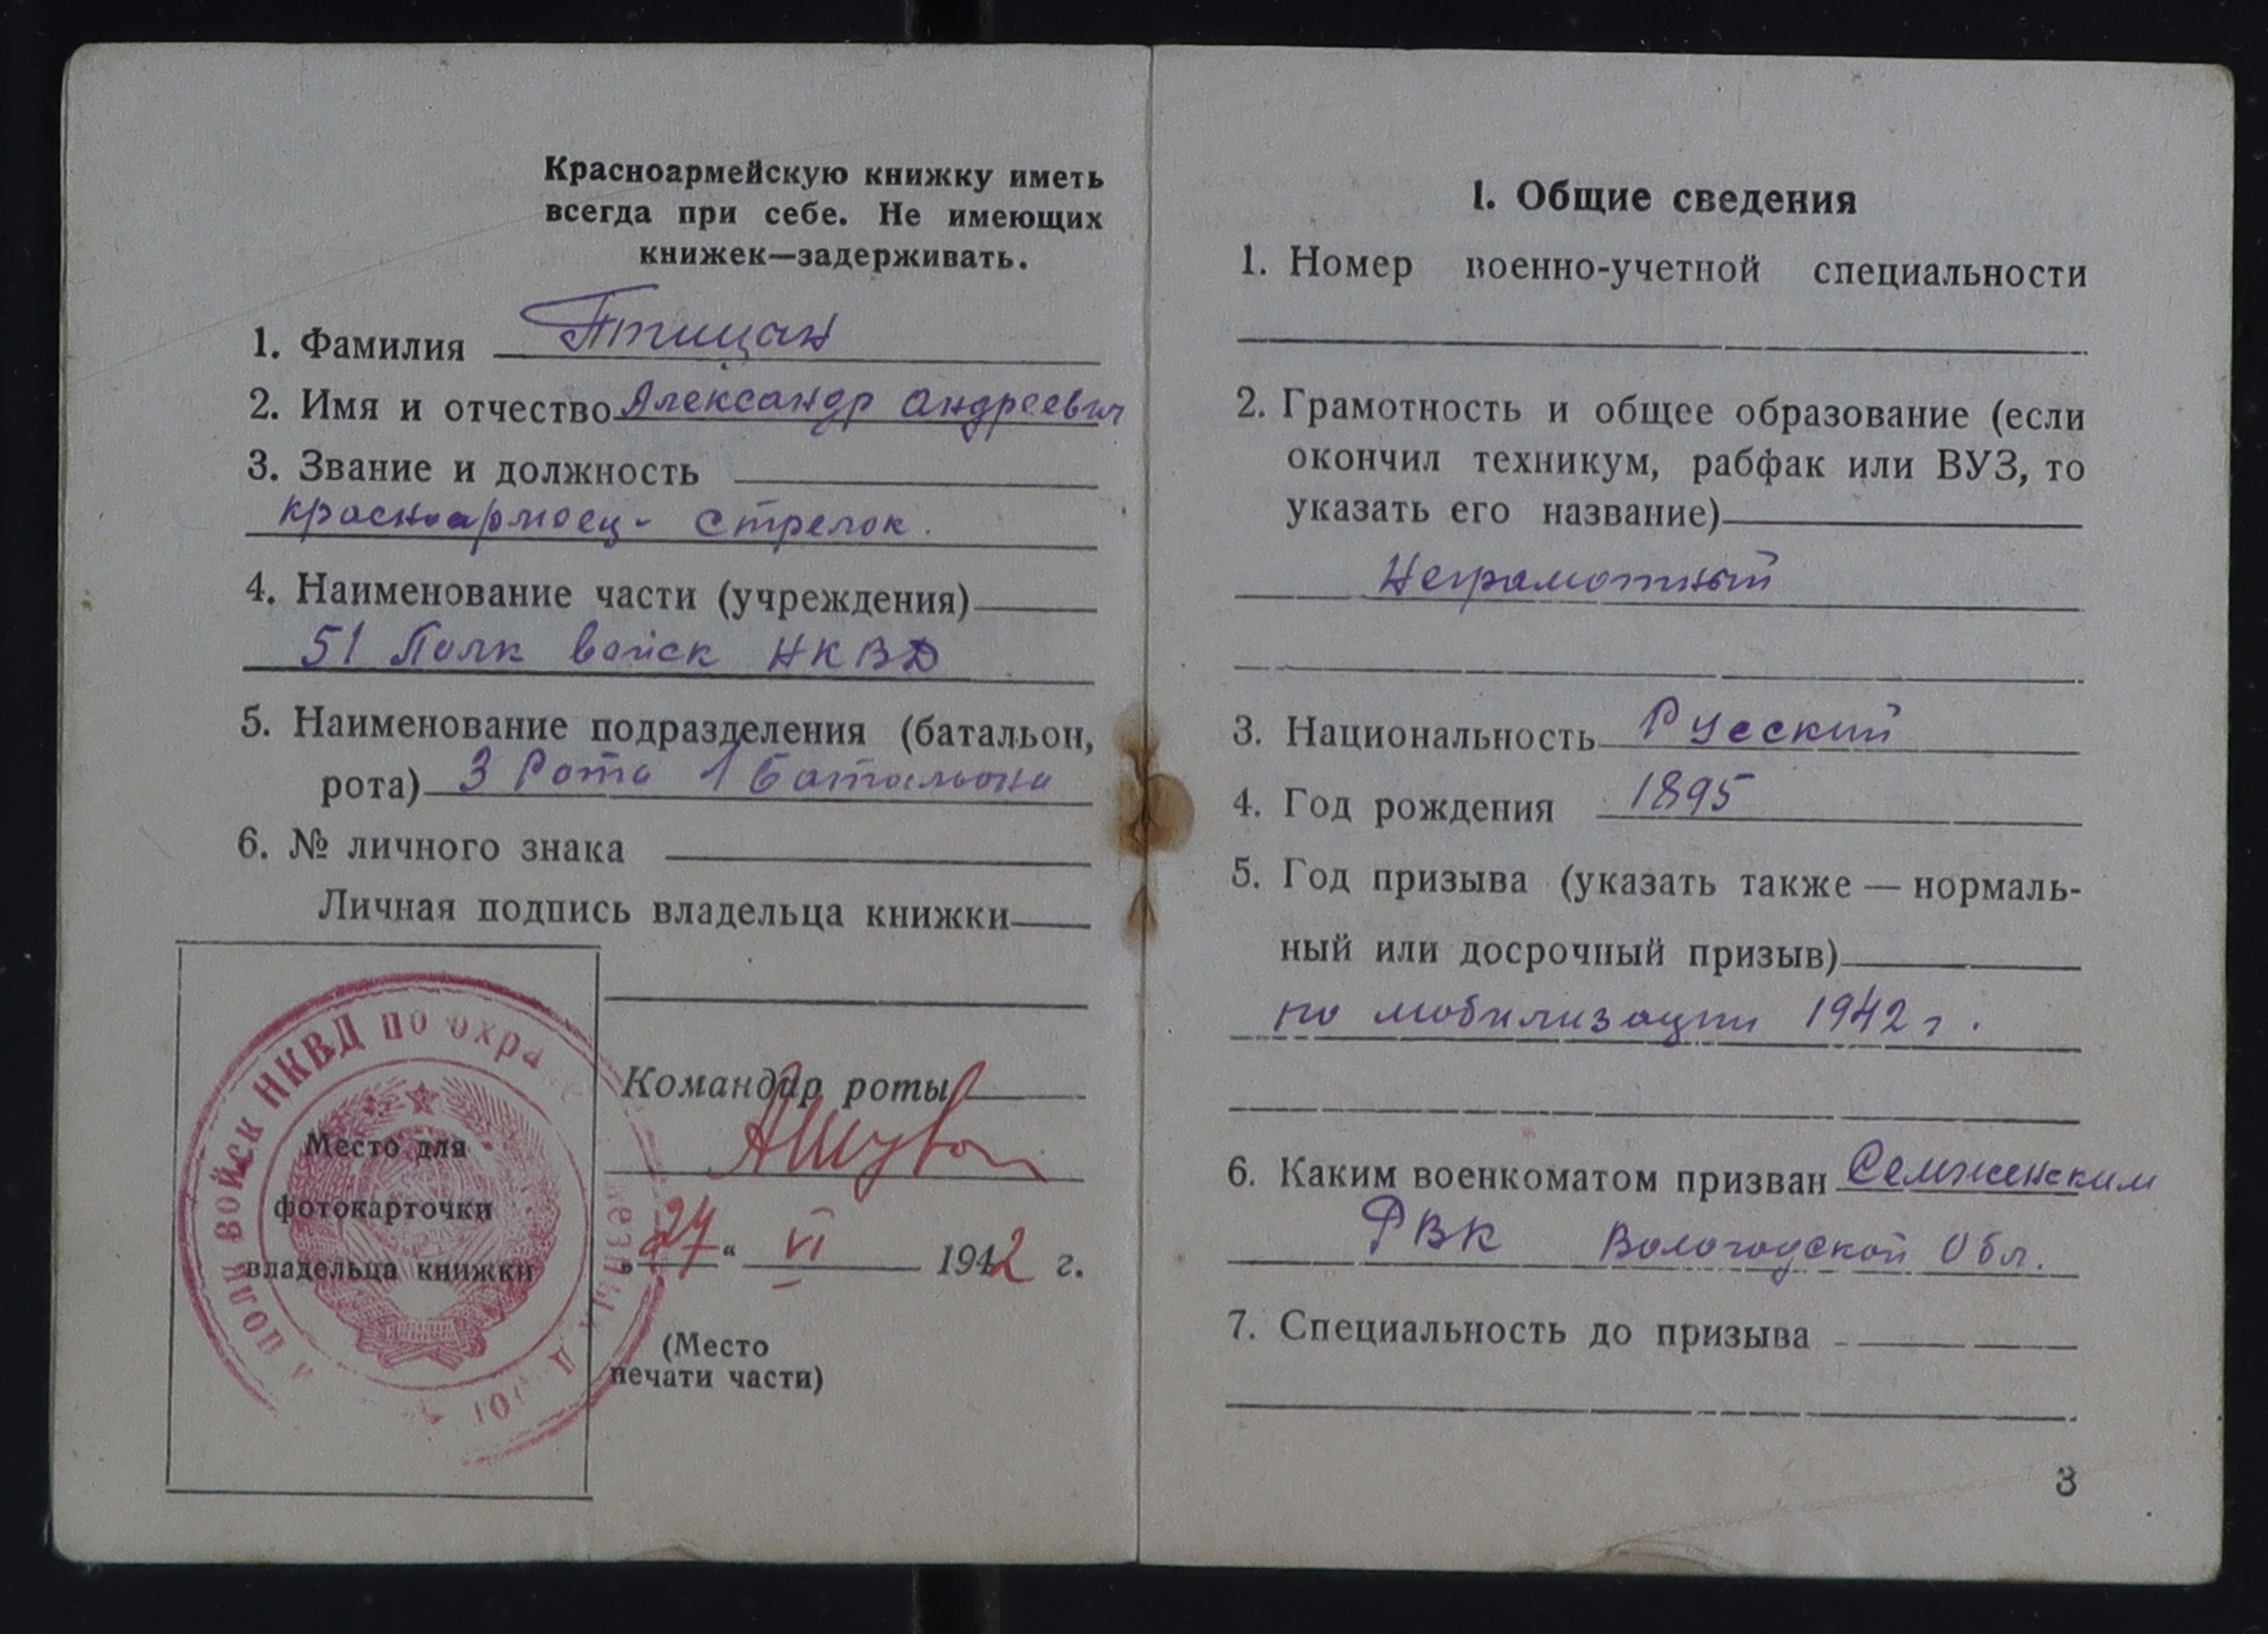 Красноармейскую книжку иметь
всегда при себе. Не имеющих
книжек—задерживать.
1. Фамилия Птицан
2. Имя и отчество Александр Андреевич
3. Звание и должность
красноармеец - стрелок.
4. Наименование части (учреждения)
51 Полк войск НКВД
5. Наименование подразделения (батальон,
рота) 3 Рота 1 Батальона
6. № личного знака
Личная подпись владельца книжки
Командир роты
"24" VI 1942 г.
(Место
печати части)
Место для
фотокарточки
владельца книжки
полк войск НКВД по охра
I. Общие сведения
1. Номер военно-учетной специальности
2. Грамотность и общее образование (если
окончил техникум, рабфак или ВУЗ, то
указать его название)
Неграмотный
3. Национальность Русский
4. Год рождения 1895
5. Год призыва (указать также — нормаль-
ный или досрочный призыв)
по мобилизации 1942 г.
6. Каким военкоматом призван Семженским
РВК Вологодской Обл.
7. Специальность до призыва
3